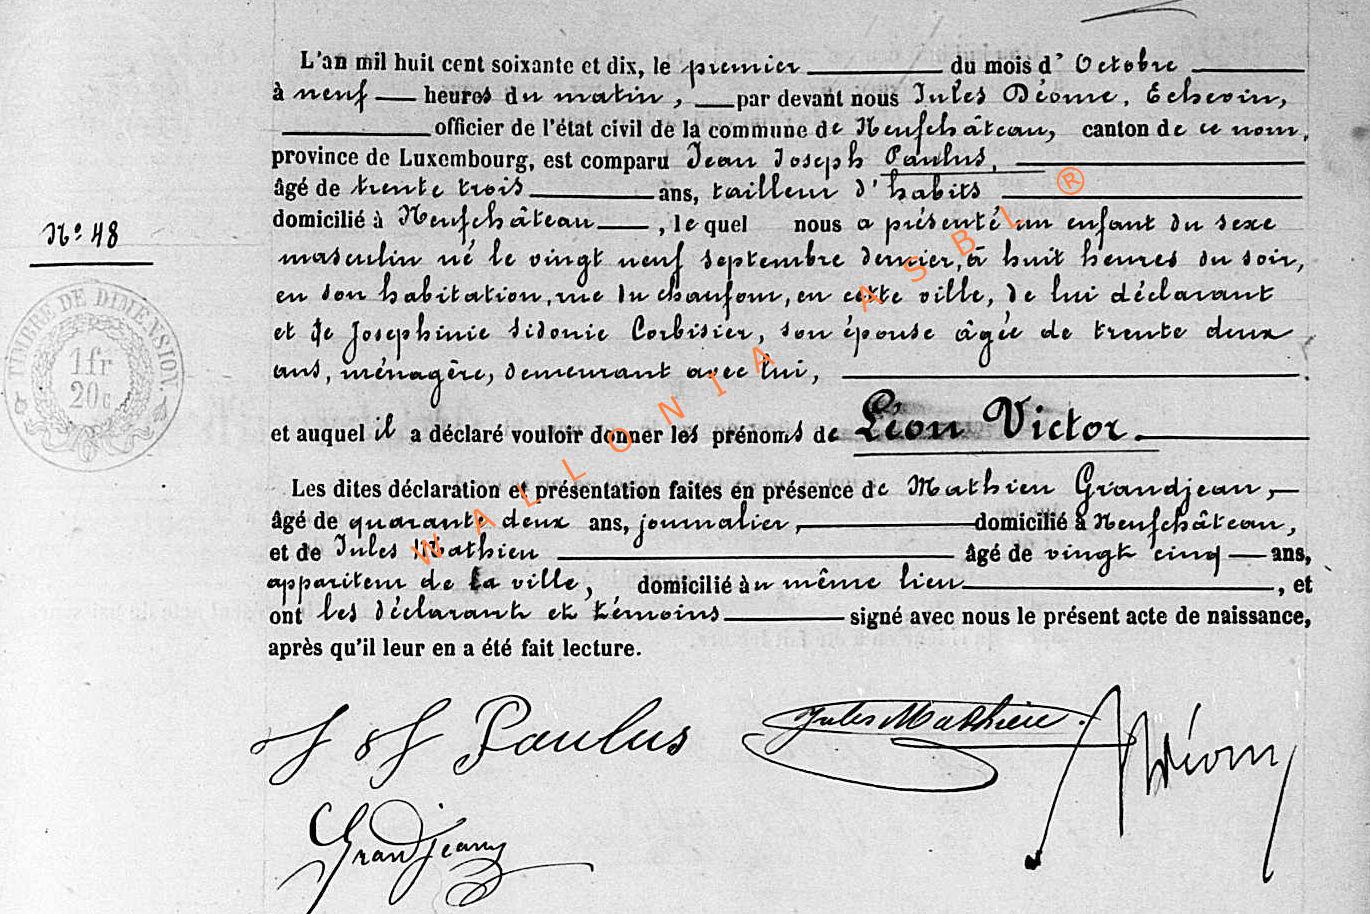 L'an mil huit cent soixante et dix, le premier du mois d'Octobre
à neuf heures du matin, par devant nous Jules Déome, Echevin,
officier de l'état civil de la commune de Neufchâteau, canton de ce nom,
province de Luxembourg, est comparu Jean Joseph Paulus,
âgé de trente trois ans, tailleur d'habits
domicilié à Neufchâteau, le quel nous a présenté un enfant du sexe
N° 48
masculin né le vingt neuf septembre dernier, à huit heures du soir,
en son habitation, rue du chaufour, en cette ville, de lui déclarant
et de Josephinie Sidonie Corbisier, son épouse âgée de trente deux
ans, ménagère, demeurant avec lui,
TIMBRE DE DIMENSION.
1fr
20c
et auquel il a déclaré vouloir donner les prénoms de Léon Victor.
Les dites déclaration et présentation faites en présence de Mathieu Grandjean,
âgé de quarante deux ans, journalier, domicilié à Neufchâteau,
et de Jules Mathieu âgé de vingt cinq ans,
appariteur de la ville, domicilié au même lieu, et
ont les déclarant et témoins signé avec nous le présent acte de naissance,
après qu'il leur en a été fait lecture.
J J Paulus
Jules Mathieu.
Grandjean
WALLONIA ASBL ®